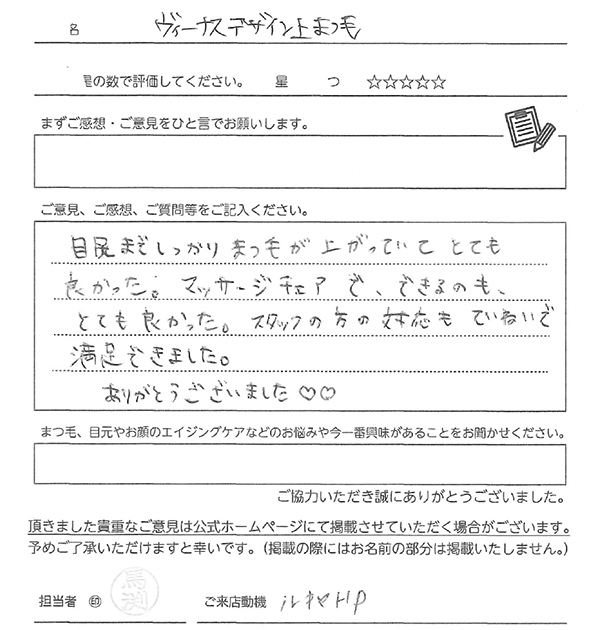 名 ヴィーナスデザイン上まつ毛
の数で評価してください。 星 つ ☆☆☆☆☆
まずご感想・ご意見をひと言でお願いします。
ご意見、ご感想、ご質問等をご記入ください。
目尻までしっかりまつ毛が上がっていてとても
良かった。マッサージチェアで、できるのも、
とても良かった。スタッフの方の対応もていねいで
満足できました。
ありがとうございました♡♡
まつ毛、目元やお顔のエイジングケアなどのお悩みや今一番興味があることをお聞かせください。
ご協力いただき誠にありがとうございました。
頂きました貴重なご意見は公式ホームページにて掲載させていただく場合がございます。
予めご了承いただけますと幸いです。(掲載の際にはお名前の部分は掲載いたしません。)
担当者 ㊞ 馬渕 ご来店動機 ルネHP